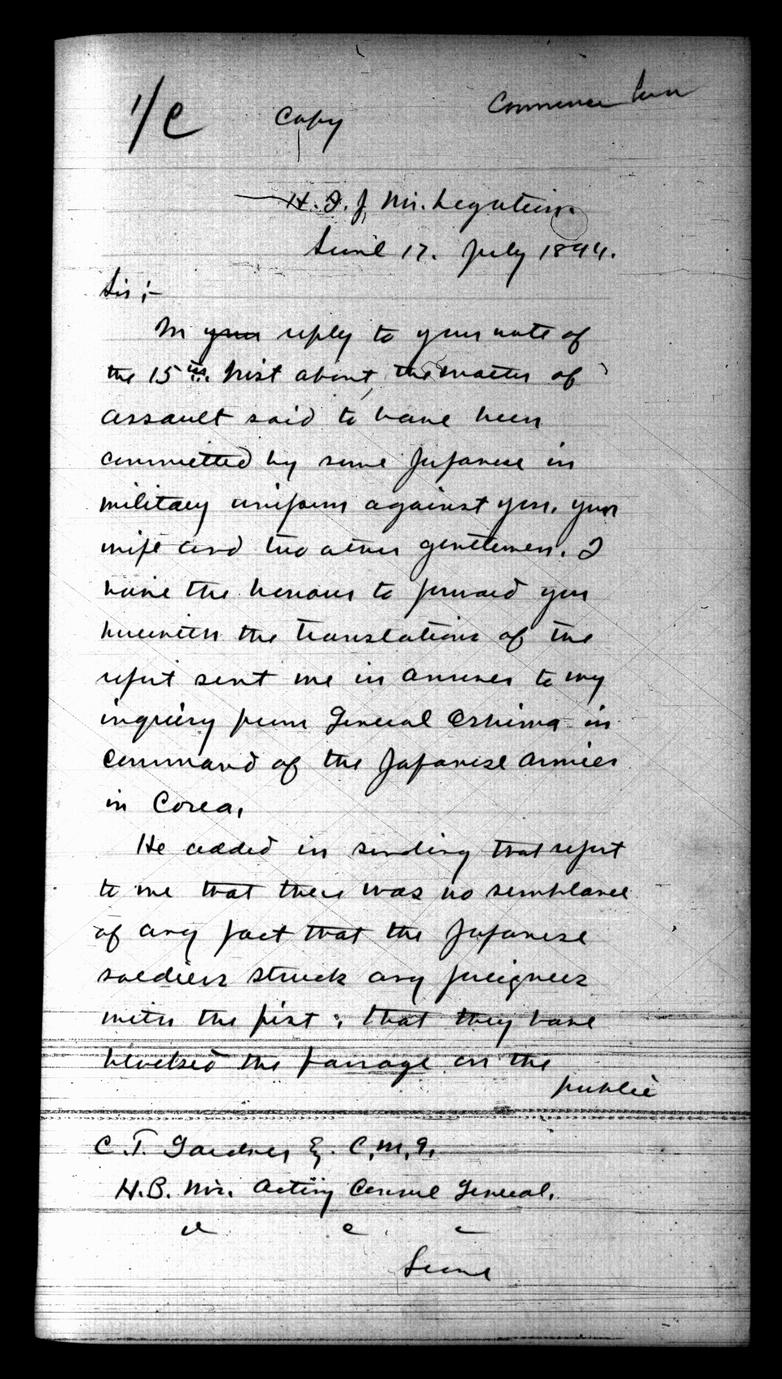 1/C Copy Commence
H. I. J. M's. Legation
Seoul 17. July 1894.
Sir :-
In your reply to your note of
the 15th. Inst about the matter of
assault said to have been
committed by some Japanese in
military uniform against you, your
wife and two other gentlemen. I
have the honour to forward you
herewith the translations of the
report sent me in answer to my
inquiry from General Oshima in
command of the Japanese Armies
in Corea,
He added in sending that report
to me that there was no semblance
of any fact that the Japanese
soldiers struck any foreigners
with the fist ; that they have
blocked the passage on the
public
C. T. Gardner E. C.M.G.
H.B. M's. Acting Consul General.
Seoul